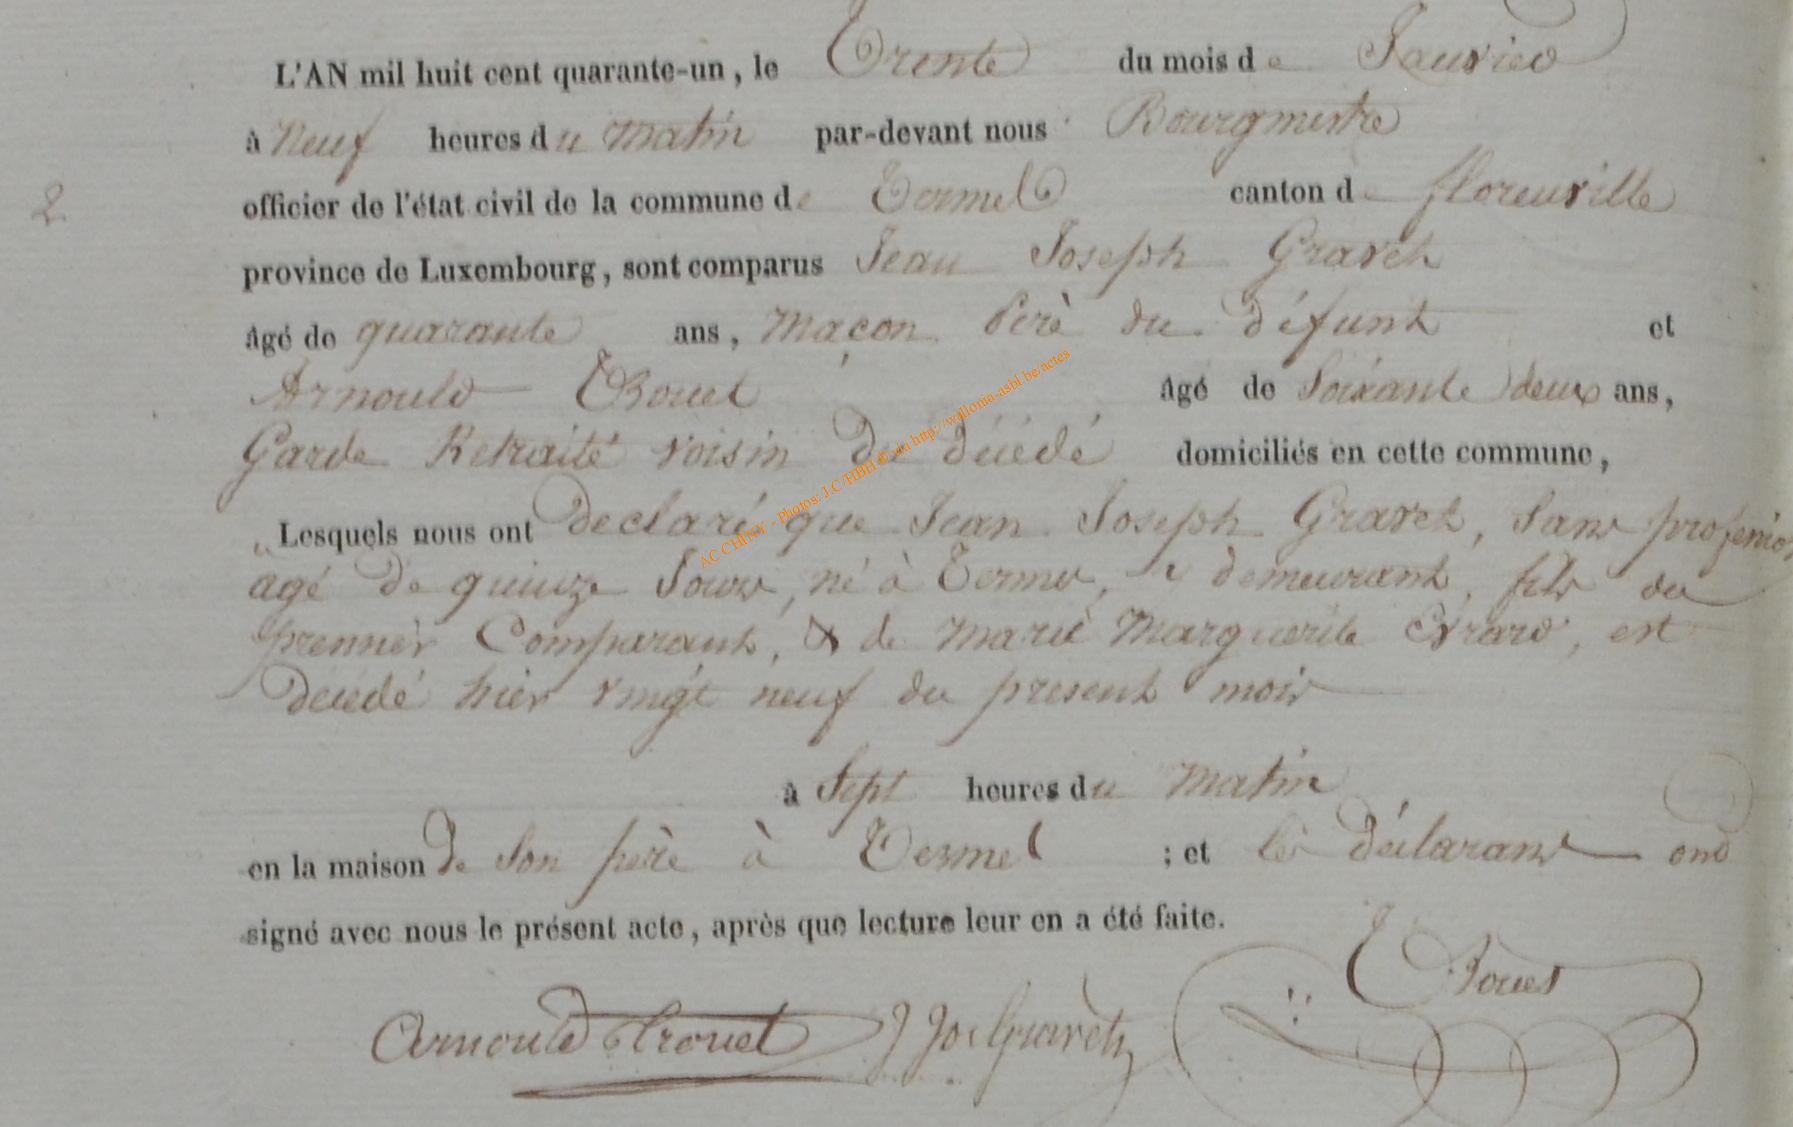 L'AN mil huit cent quarante-un, le Trente du mois de Janvier
à Neuf heures du Matin par-devant nous Bourgmestre
2 officier de l'état civil de la commune de Termel canton de florenville
province de Luxembourg, sont comparus Jean Joseph Gravet
âgé de quarante ans, Maçon Père du défunt et
Arnould Trouet âgé de Soixante deux ans,
Garde Retraité voisin du décédé domiciliés en cette commune,
Lesquels nous ont declaré que Jean Joseph Gravet, Sans profession
agé de quinze Jours, né à Termes, y demeurant, fils du
premier Comparant, & de Marie Marguerite Evrard, est
decédé hier vingt neuf du present mois
à Sept heures du Matin
en la maison de Son père à Termel ; et les déclarans ont
signé avec nous le présent acte, après que lecture leur en a été faite.
Arnould Trouet J Jos Gravet
AC CHINY - Photos: J.C/HBH © via http://wallonia-asbl.be/actes